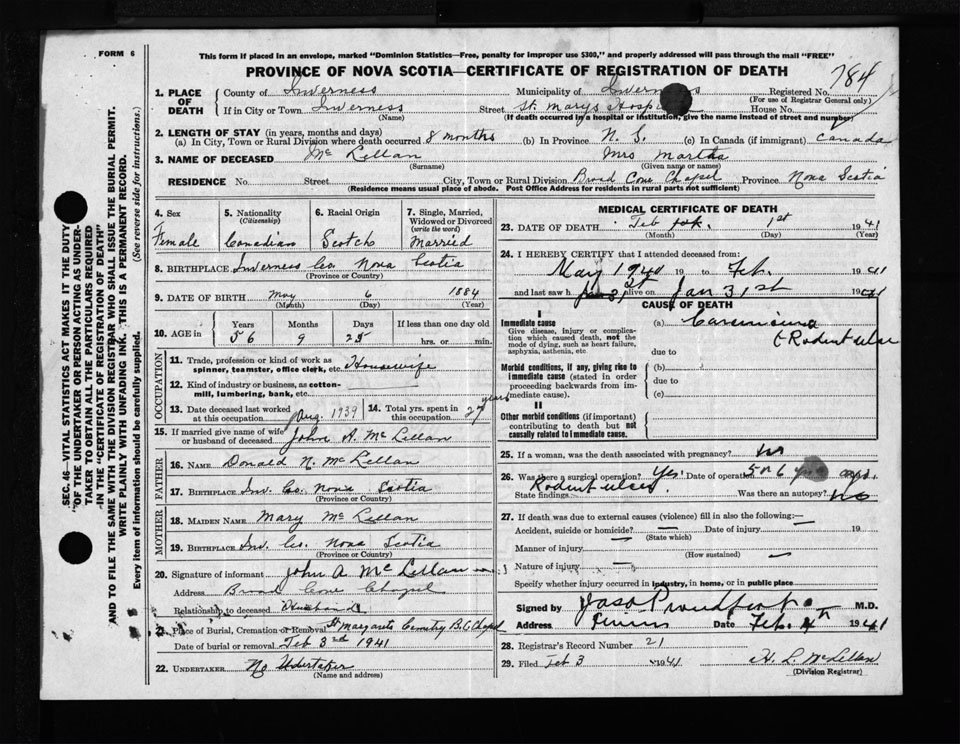 FORM 6
This form if placed in an envelope, marked "Dominion Statistics—Free, penalty for improper use $300," and properly addressed will pass through the mail "FREE"
PROVINCE OF NOVA SCOTIA—CERTIFICATE OF REGISTRATION OF DEATH
784
SEC. 46—VITAL STATISTICS ACT MAKES IT THE DUTY
"OF THE UNDERTAKER OR PERSON ACTING AS UNDER-
TAKER TO OBTAIN ALL THE PARTICULARS REQUIRED
IN THE "CERTIFICATE OF REGISTRATION OF DEATH"
AND TO FILE THE SAME WITH THE DIVISION REGISTRAR WHO SHALL ISSUE THE BURIAL PERMIT.
WRITE PLAINLY WITH UNFADING INK. THIS IS A PERMANENT RECORD.
Every item of information should be carefully supplied. (See reverse side for instructions.)
1. PLACE OF DEATH County of Inverness Municipality of Inverness Registered No.
(For use of Registrar General only)
If in City or Town Inverness Street St. Marys Hospital House No.
(Name) (If death occurred in a hospital or institution, give the name instead of street and number)
2. LENGTH OF STAY (in years, months and days)
(a) In City, Town or Rural Division where death occurred 8 months (b) In Province N. S. (c) In Canada (if immigrant) Canada
3. NAME OF DECEASED Mc Lellan Mrs Martha
(Surname) (Given name or names)
RESIDENCE No. Street City, Town or Rural Division Broad Cove Chapel Province Nova Scotia
(Residence means usual place of abode. Post Office Address for residents in rural parts not sufficient)
4. Sex Female
5. Nationality (Citizenship) Canadian
6. Racial Origin Scotch
7. Single, Married, Widowed or Divorced (write the word) Married
8. BIRTHPLACE Inverness Co. Nova Scotia
(Province or Country)
9. DATE OF BIRTH May 6 1884
(Month) (Day) (Year)
10. AGE in Years Months Days If less than one day old
56 9 25 hrs. or min.
OCCUPATION
11. Trade, profession or kind of work as spinner, teamster, office clerk, etc. Housewife
12. Kind of industry or business, as cotton-mill, lumbering, bank, etc.
13. Date deceased last worked at this occupation Aug. 1939
14. Total yrs. spent in this occupation 27 years
15. If married give name of wife or husband of deceased John A. Mc Lellan
FATHER
16. NAME Donald N. Mc Lellan
17. BIRTHPLACE Inv. Co. Nova Scotia
(Province or Country)
MOTHER
18. MAIDEN NAME Mary Mc Lellan
19. BIRTHPLACE Inv. Co. Nova Scotia
(Province or Country)
20. Signature of informant John A. Mc Lellan
Address Broad Cove Chapel
Relationship to deceased Husband
21. Place of Burial, Cremation or Removal St Margarets Cemetry B. C. Chapel
Date of burial or removal Feb 3rd 1941
22. UNDERTAKER No Undertaker
(Name and address)
MEDICAL CERTIFICATE OF DEATH
23. DATE OF DEATH Feb 1st 1941
(Month) (Day) (Year)
24. I HEREBY CERTIFY that I attended deceased from:
May 1940 19 to Feb. 1941
and last saw h alive on Jan 31st 1941
CAUSE OF DEATH
I
Immediate cause
Give disease, injury or complication which caused death, not the mode of dying, such as heart failure, asphyxia, asthenia, etc.
(a) Carcinoma
Rodent ulcer
due to
Morbid conditions, if any, giving rise to immediate cause (stated in order proceeding backwards from immediate cause).
(b)
due to
(c)
II
Other morbid conditions (if important) contributing to death but not causally related to immediate cause.
25. If a woman, was the death associated with pregnancy? No
26. Was there a surgical operation? Yes Date of operation 5 or 6 yrs ago.
State findings Rodent ulcer Was there an autopsy? No
27. If death was due to external causes (violence) fill in also the following:—
Accident, suicide or homicide? Date of injury 19
(State which)
Manner of injury
(How sustained)
Nature of injury
Specify whether injury occurred in industry, in home, or in public place
Signed by Jas. Proudfoot M.D.
Address Date Feb. 4th 1941
28. Registrar's Record Number 21
29. Filed Feb 3 1941 H. L. McLellan
(Division Registrar)